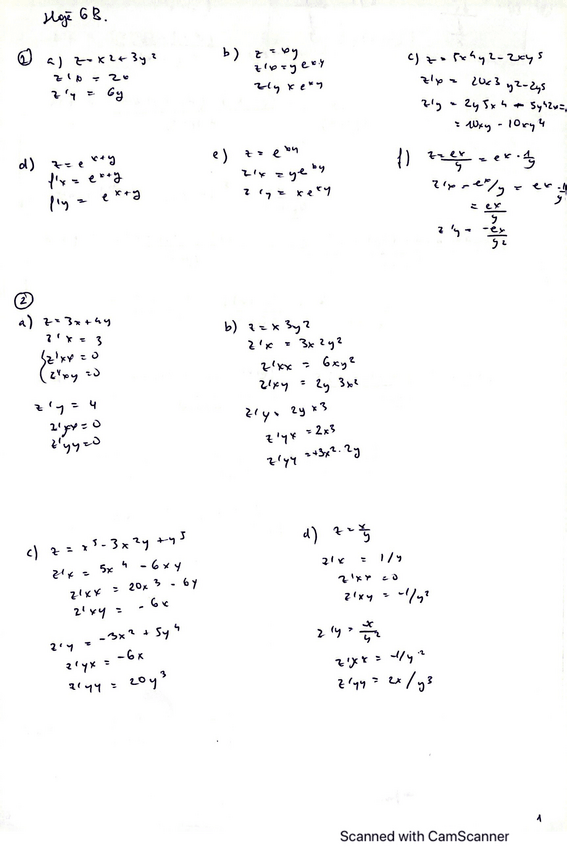 6B.
① a) z = x2 + 3y2
z'x = 2x
z'y = 6y
b) z = xy
z'x = y exy
z'y x exy
c) z = 5x4y2 - 2xy5
z'x = 20x3 y2 - 2y5
= 10xy - 10xy4
d) z = e x+y
f'x = e x+y
f'y = e x+y
e) z = e xy
z'x = ye xy
z'y = x exy
f) z = ex/y = ex · 1/y
= ex/y
z'y = -ex/y2
②
a) z = 3x + 4y
z'x = 3
z'xx = 0
z'xy = 0
z'y = 4
z'yx = 0
z'yy = 0
b) z = x 3y2
z'x = 3x2y2
z'xx = 6xy2
z'xy = 2y 3x2
z'y = 2y x3
z'yx = 2x3
z'yy = +3x2 · 2y
c) z = x5 - 3x2y + y5
z'x = 5x4 - 6xy
z'xx = 20x3 - 6y
z'xy = -6x
z'y = -3x2 + 5y4
z'yx = -6x
z'yy = 20y3
d) z = x/y
z'x = 1/y
z'xx = 0
z'xy = -1/y2
z'y = x/y2
z'yx = -1/y2
z'yy = 2x/y3
1
Scanned with CamScanner